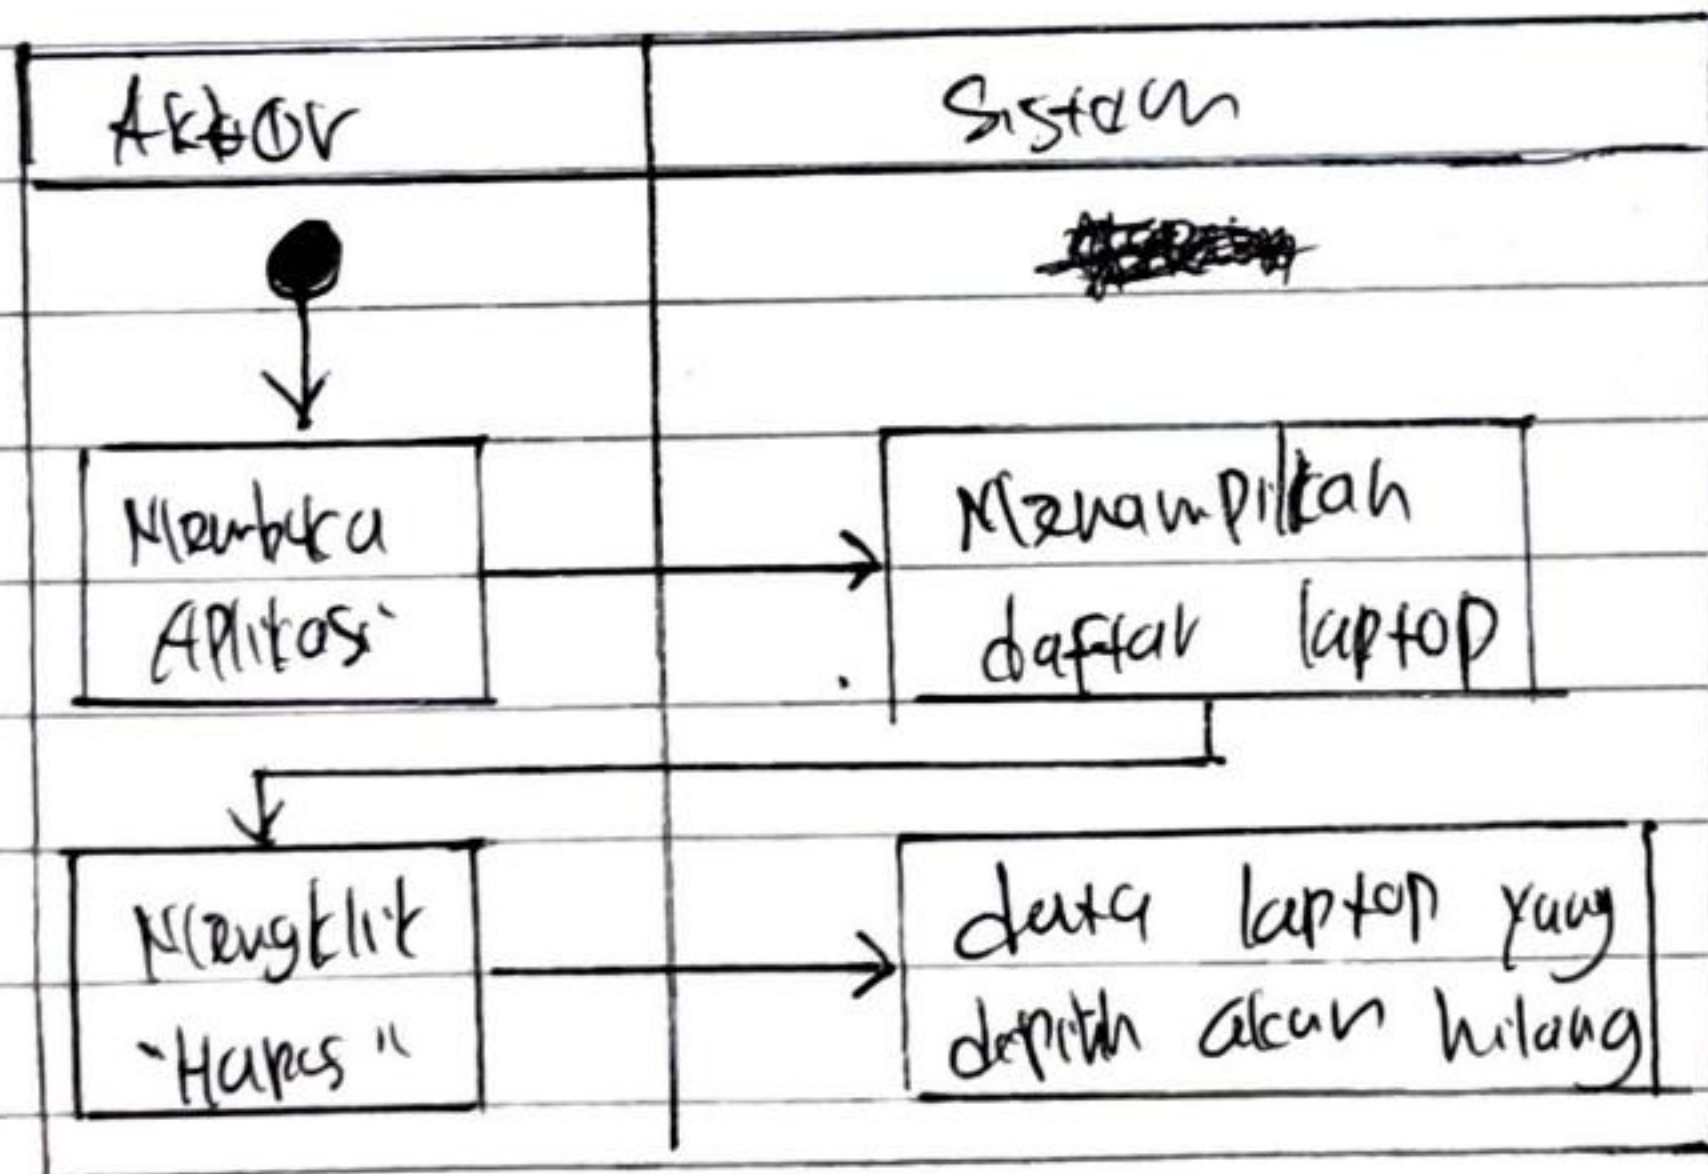 Aktor
Sistem
Membuka
Aplikasi
Menampilkan
daftar laptop
Mengklik
"Hapus"
data laptop yang
depilih akan hilang